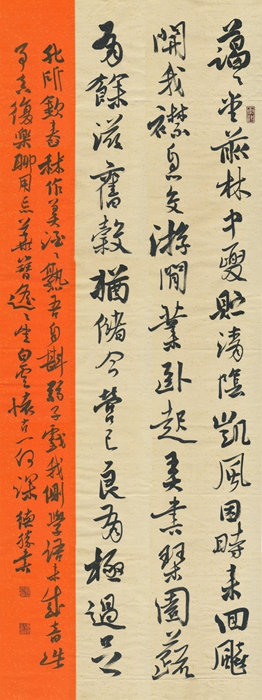 蔼〻堂前林中夏贮清阴凯风因时来回飚
開我襟息交游閒業卧起弄书琴園蔬
有餘滋舊穀猶储今营己良有極過足
非所欽舂秫作美酒〻熟吾自斟弱子戏我側学语未成音此
事真復樂聊用忘華簪遥〻望白雲懷古一何深 德勝书